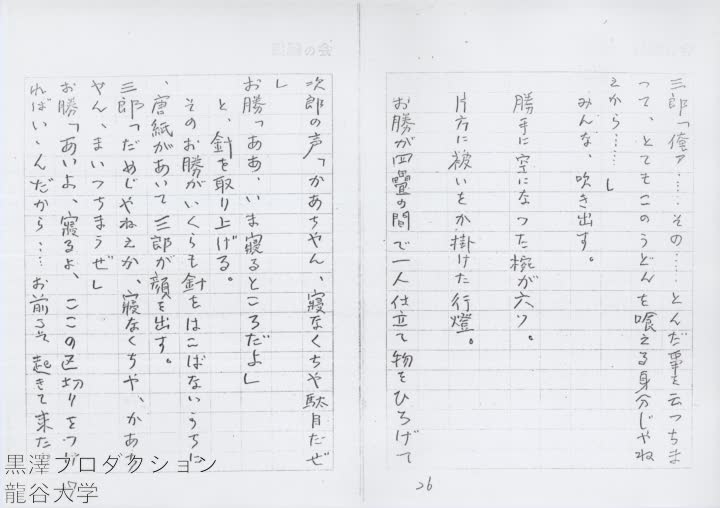 三郎「俺ァ……その……とんだ事を云つちま
つて、とてもこのうどんを喰える身分じやね
えから……」
みんな、吹き出す。
勝手に空になつた椀が六ツ。
片方に被いをか掛けた行燈。
お勝が四疊の間で一人仕立て物をひろげて
26
次郎の声「かあちやん、寝なくちや駄目だぜ
」
お勝「ああ、いま寝るところだよ」
と、針を取り上げる。
そのお勝がいくらも針をはこばないうちに
、唐紙があいて三郎が顔を出す。
三郎「だめじやねえか、寝なくちや、かあち
やん、まいつちまうぜ」
お勝「あいよ、寝るよ、ここの区切りをつけ
ればいゝんだから……お前こそ起きて来た
黒澤プロダクション
龍谷大学